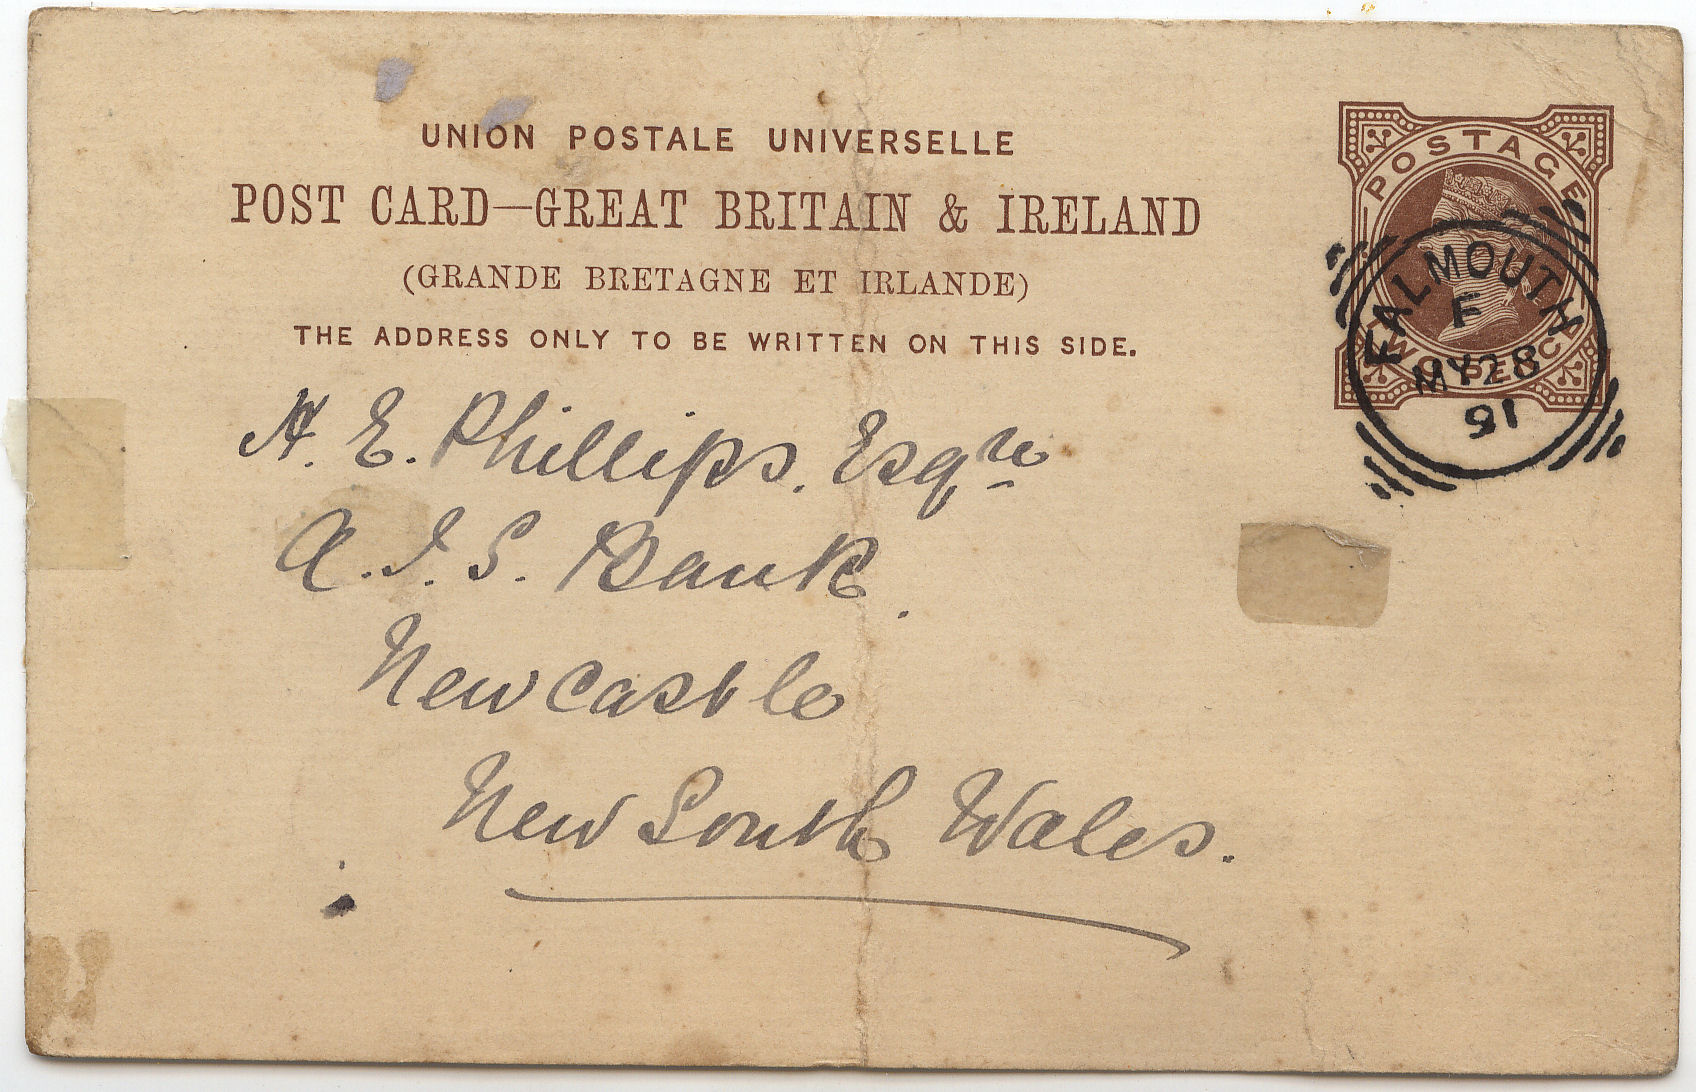 UNION POSTALE UNIVERSELLE
POST CARD—GREAT BRITAIN & IRELAND
(GRANDE BRETAGNE ET IRLANDE)
THE ADDRESS ONLY TO BE WRITTEN ON THIS SIDE.
POSTAGE
TWO PENCE
FALMOUTH
F
MY 28
91
H. E. Phillips. Esqre
A. J. S. Bank.
Newcastle
New South Wales.